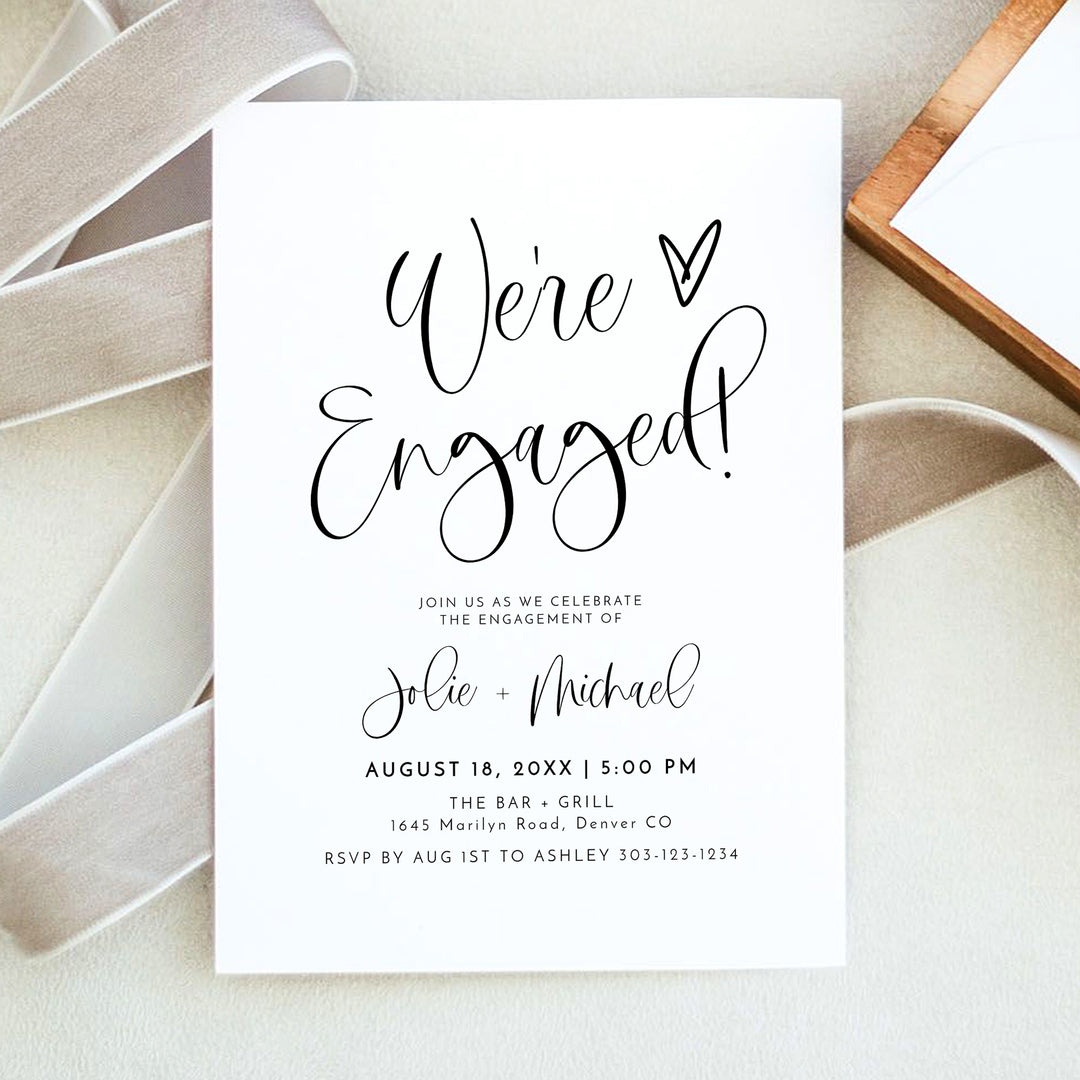 We're
Engaged!
JOIN US AS WE CELEBRATE
THE ENGAGEMENT OF
Jolie + Michael
AUGUST 18, 20XX | 5:00 PM
THE BAR + GRILL
1645 Marilyn Road, Denver CO
RSVP BY AUG 1ST TO ASHLEY 303-123-1234